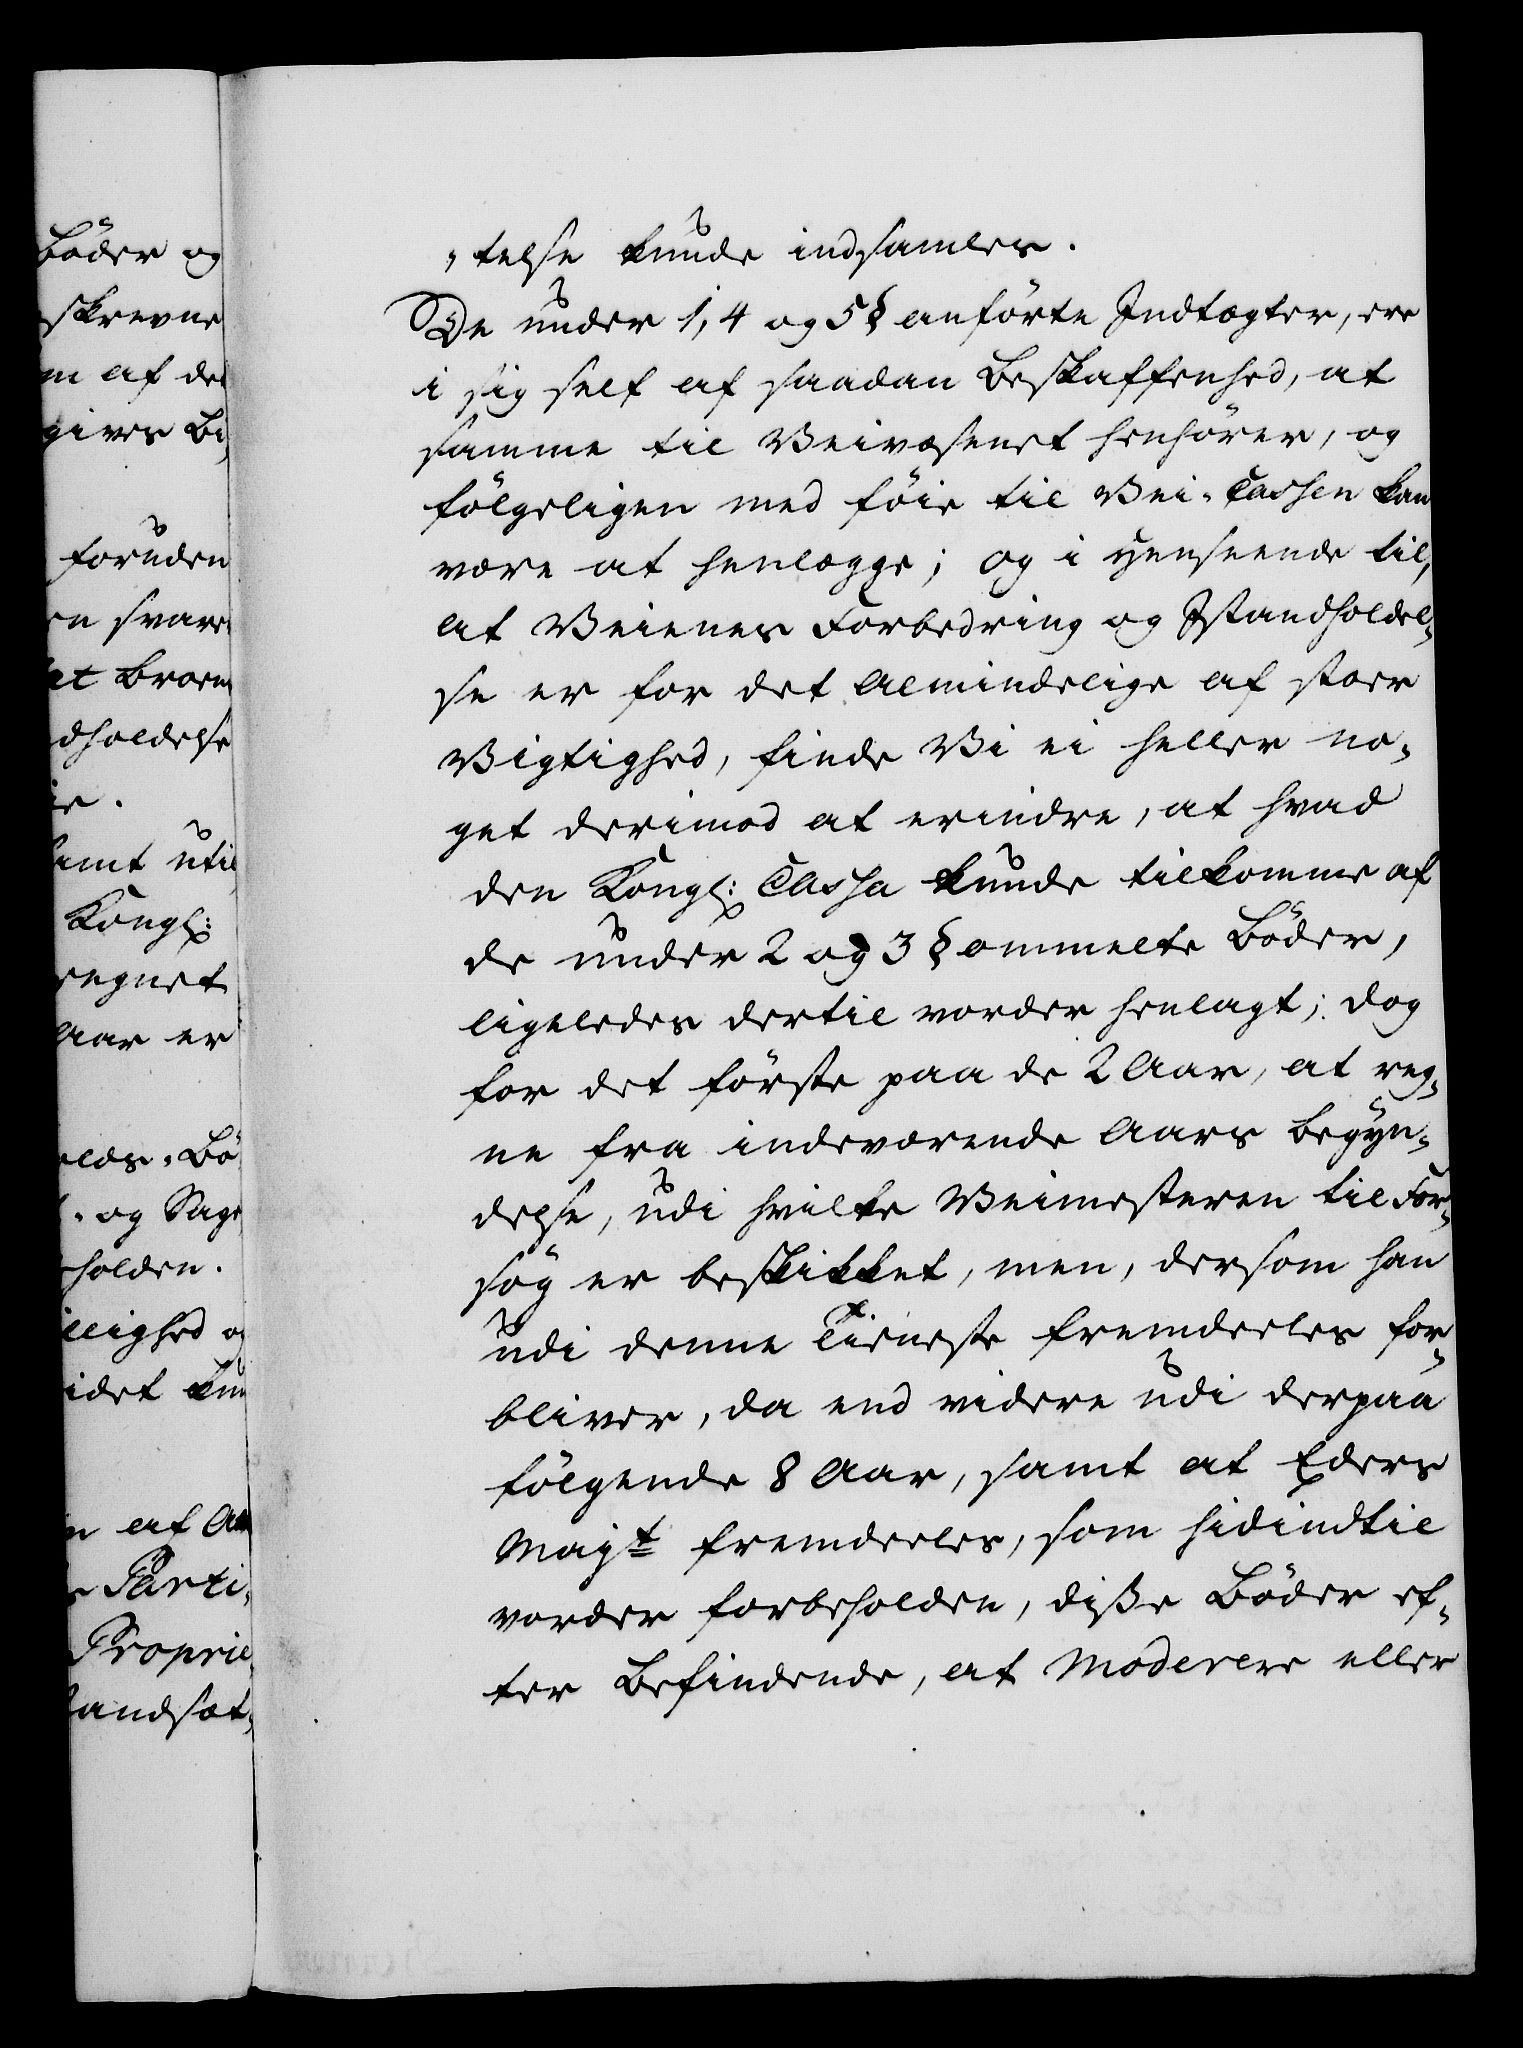 Böder og
skrevne
m af de
gives Be,
foruden
en svare
at Broen
dholdelse
ie.
samt util
Kongl:
regnet
Aar er
olds-Bö
- og Sage
holden.
llighed og
idet kun
n af Am
Parti,
Proprie,
andsæt,
,telse kunde indsamles.
De under 1, 4 og 5 § anförte Indtægter, ere
i sig self af saadan Beskaffenhed, at
samme til Veivæsenet henhörer, og
fölgeligen med föie til Vei-Cassen kan
være at henlægge; og i Henseende til,
at Veienes Forbedring og Istandholdel,
se er for det Almindelige af stoer
Vigtighed, finde Vi ei heller no,
get derimod at erindre, at hvad
den Kongl: Cassa kunde tilkomme af
de under 2 og 3 § ommelte Böder,
ligeledes dertil vorder henlagt; dog
for det förste paa de 2 Aar, at reg,
ne fra indeværende Aars Begyn,
delse, udi hvilke Veimesteren til For,
sög er beskikket, men, dersom han
udi denne Tieneste fremdeeles for,
bliver, da end videre udi derpaa
fölgende 8 Aar, samt at Eders
Majt fremdeeles, som hidindtil
vorder forbeholden, diße Böder ef,
ter Befindende, at Moderere eller